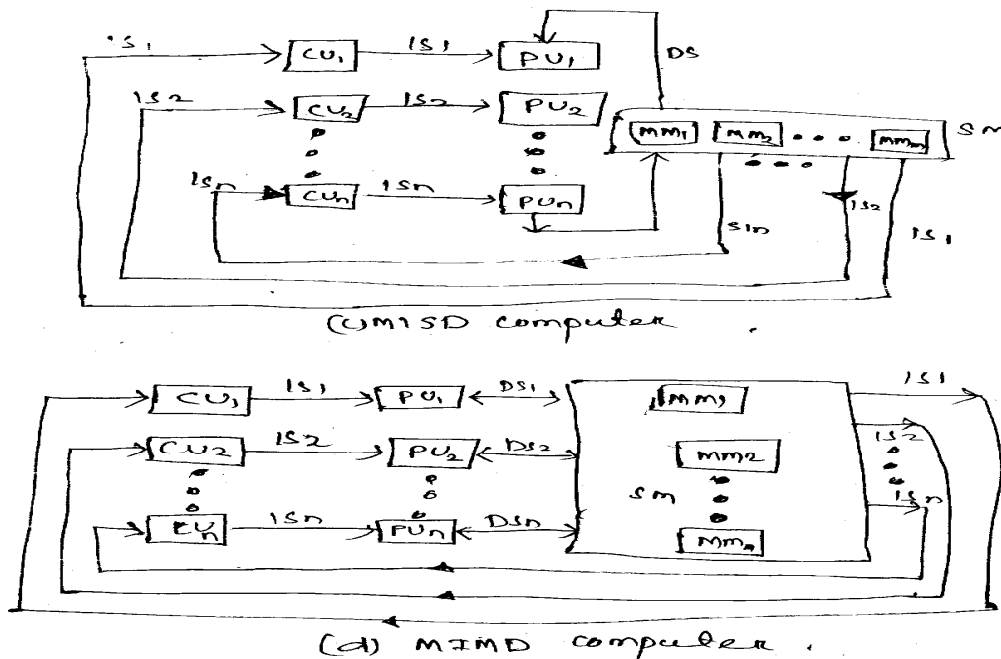 IS1 CU1 IS1 PU1 DS
IS2 CU2 IS2 PU2
MM1 MM2 MMm SM
ISn CUn ISn PUn
SIn IS2 IS1
(c) MISD computer.
CU1 IS1 PU1 DS1 MM1 IS1
CU2 IS2 PU2 DS2 MM2 IS2
SM
CUn ISn PUn DSn MMn ISn
(d) MIMD computer.